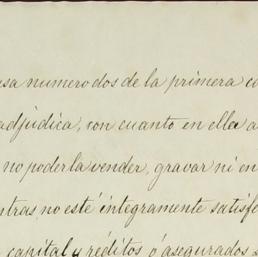 numero dos de la primera
adjudica, con cuanto en ella
no poderla vender, gravar ni
no esté íntegramente
capital y réditos ó asegurados